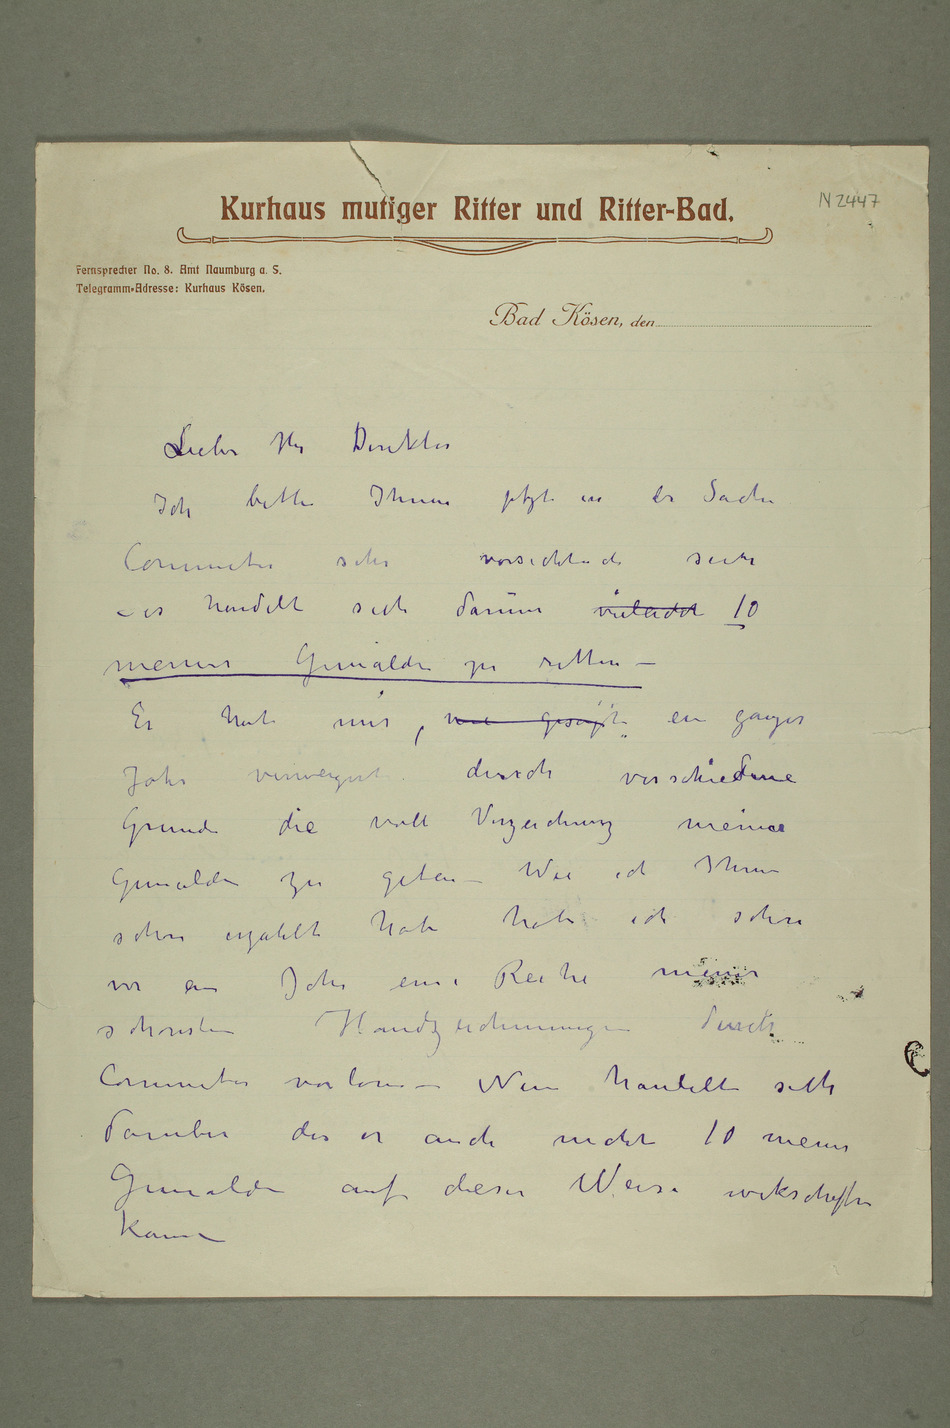 N 2447
Kurhaus mutiger Ritter und Ritter-Bad.
Fernsprecher No. 8. Amt Naumburg a. S.
Telegramm-Adresse: Kurhaus Kösen.
Bad Kösen, den
Lieber Herr Direktor
Ich bitte Ihnen jetzt in der Sache
Commeter sehr vorsichtich sein
– es handelt sich darum vieleicht 10
meiner Gemälde zu retten –
Er hat mir, wie gesagt, ein ganzes
Jahr verweigert durch verschiedene
Grunde die voll Verzeichnung meine
Gemälde zu geben – Wie ich Ihnen
schon erzahlt habe habe ich schon
vor ein Jahr eine Reihe meiner
schonsten Handzeichnungen durch
Commeter verloren – Nun handelt sich
daruber das er auch nicht 10 meiner
Gemälde auf dieser Weise wekschaffen
kann –